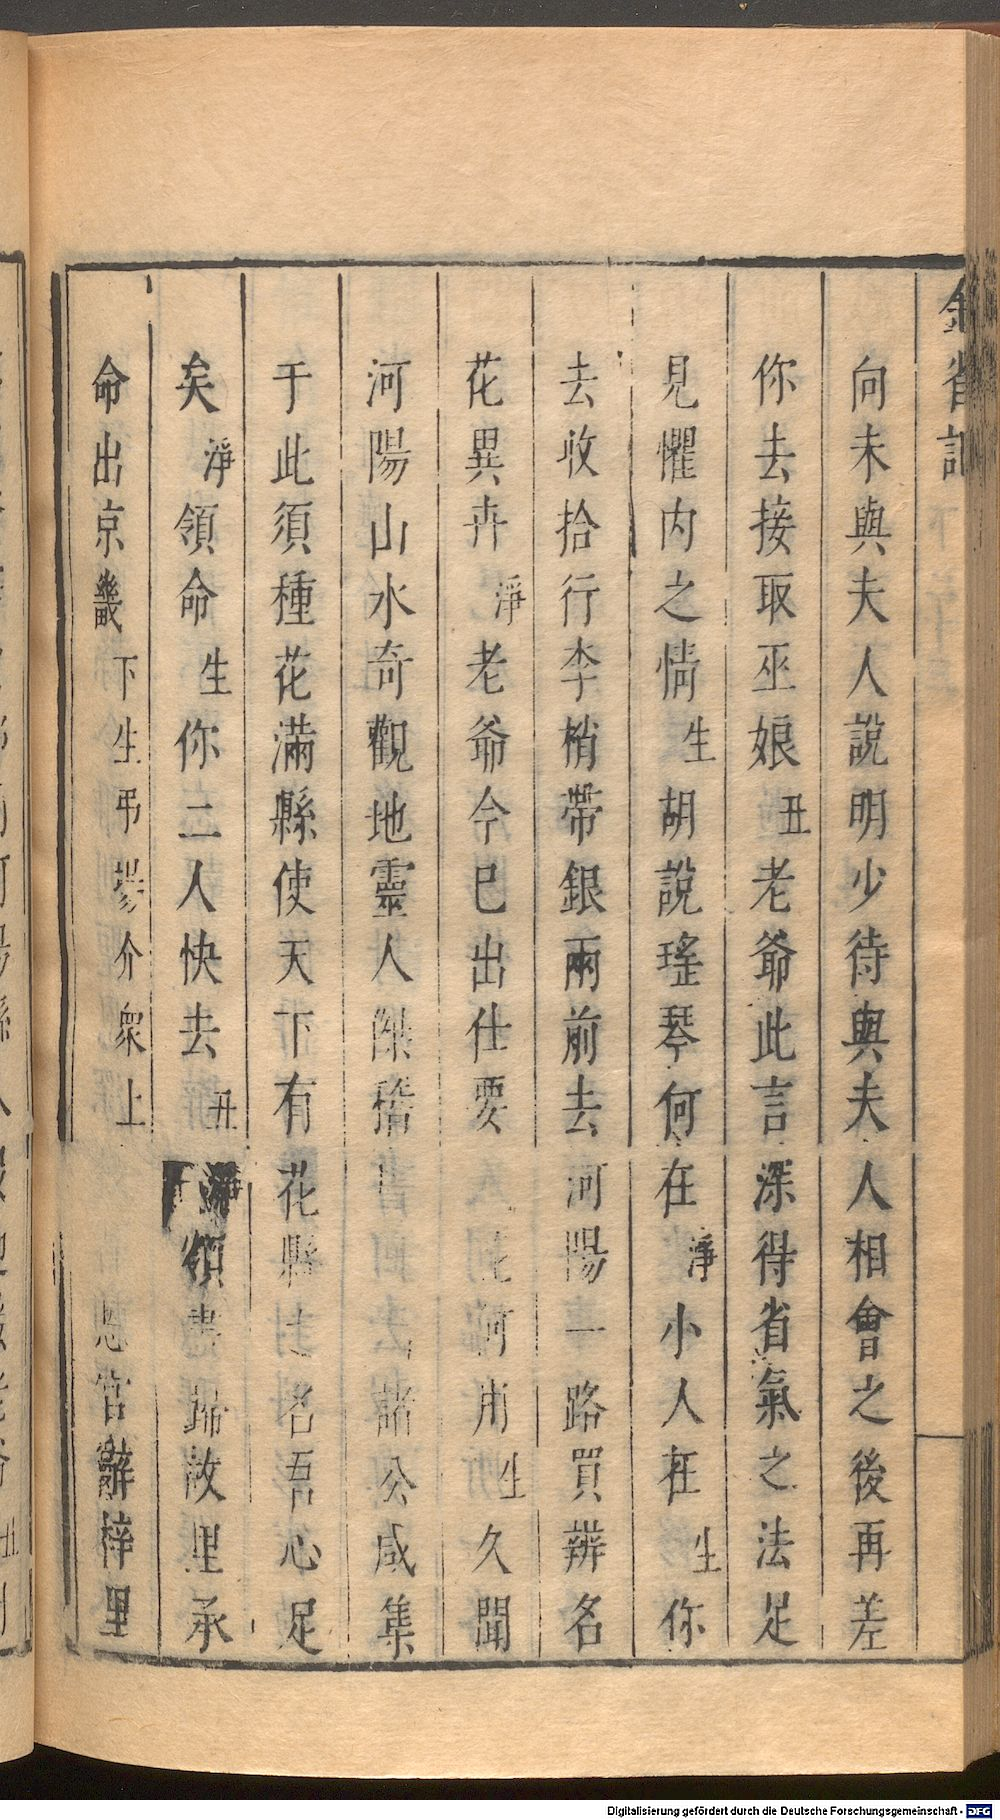 向未與夫人說明少待與夫人相會之後再差
你去接取巫娘丑老爺此言深得省氣之法足
見懼内之情生胡說瑤琴何在淨小人在生你
去收拾行李梢帶銀兩前去河陽一路買辨名
花異卉淨老爺今巳出仕要花何用生久聞
河陽山水奇觀地靈人傑諸公咸集
于此須種花滿縣使天下有花縣之名吾心足
矣淨領命生你二人快去丑淨領書歸故里承
命出京畿下生弔場介衆上恩官辭梓里
Digitalisierung gefördert durch die Deutsche Forschungsgemeinschaft - DFG